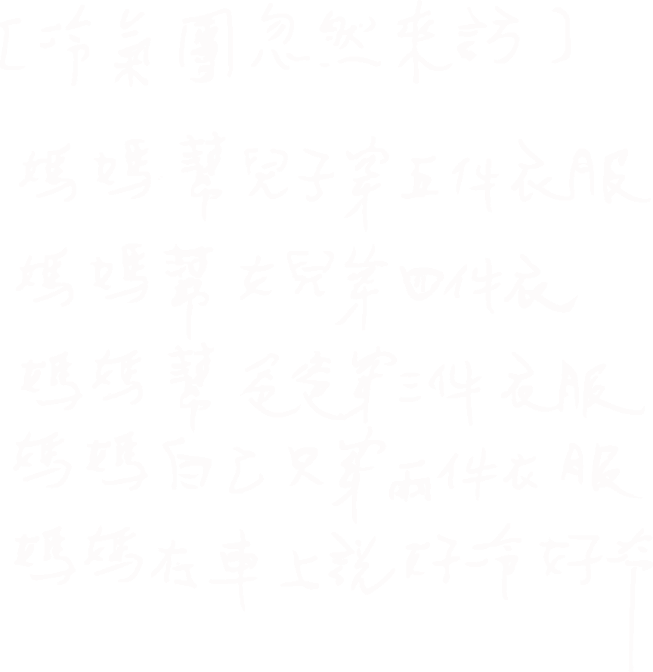 ［冷氣團忽然來訪］
媽媽幫兒子穿五件衣服
媽媽幫女兒穿四件衣
媽媽幫爸爸穿三件衣服
媽媽自己只穿兩件衣服
媽媽在車上說好冷好冷